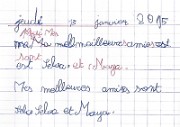 jeudi 18 janvier 2015
Mes
ma meilleures amies est
sont
est Selva. et Maya.
Mes meilleures amies sont
Selva et Maya.